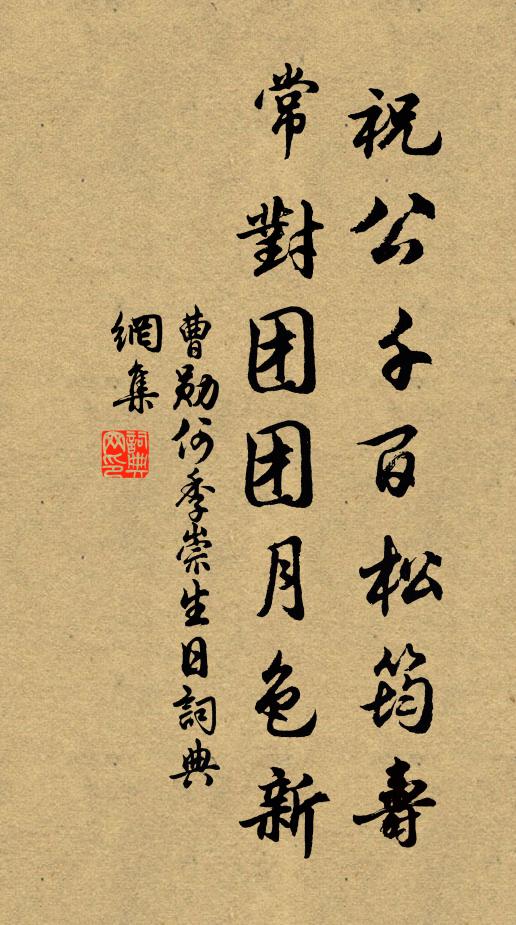 祝公千百松筠壽
常對团团月色新
曹勛何季崇生日詞典
網集
詞典网印